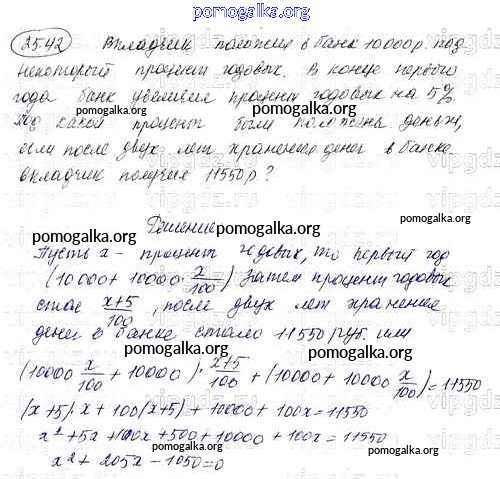 pomogalka.org
25.42 Вкладчик положил в банк 10000р. под
некоторый процент годовых. В конце первого
года банк увеличил процент годовых на 5%
pomogalka.org pomogalka.org
Под какой процент были положены деньги,
если после двух лет хранения денег в банке
вкладчик получил 11550р?
pomogalka.org
Решение
pomogalka.org pomogalka.org
Пусть x - процент годовых, то первый год
(10000 + 10000 · x/100) Затем процент годовых
pomogalka.org
стал x+5/100, после двух лет хранения
денег в банке стало 11550 руб. или
pomogalka.org
(10000 x/100 + 10000) · x+5/100 + (10000 + 10000 x/100) = 11550
(x+5)·x + 100(x+5) + 10000 + 100x = 11550
pomogalka.org
x² + 5x + 100x + 500 + 10000 + 100x = 11550
x² + 205x - 1050 = 0
pomogalka.org